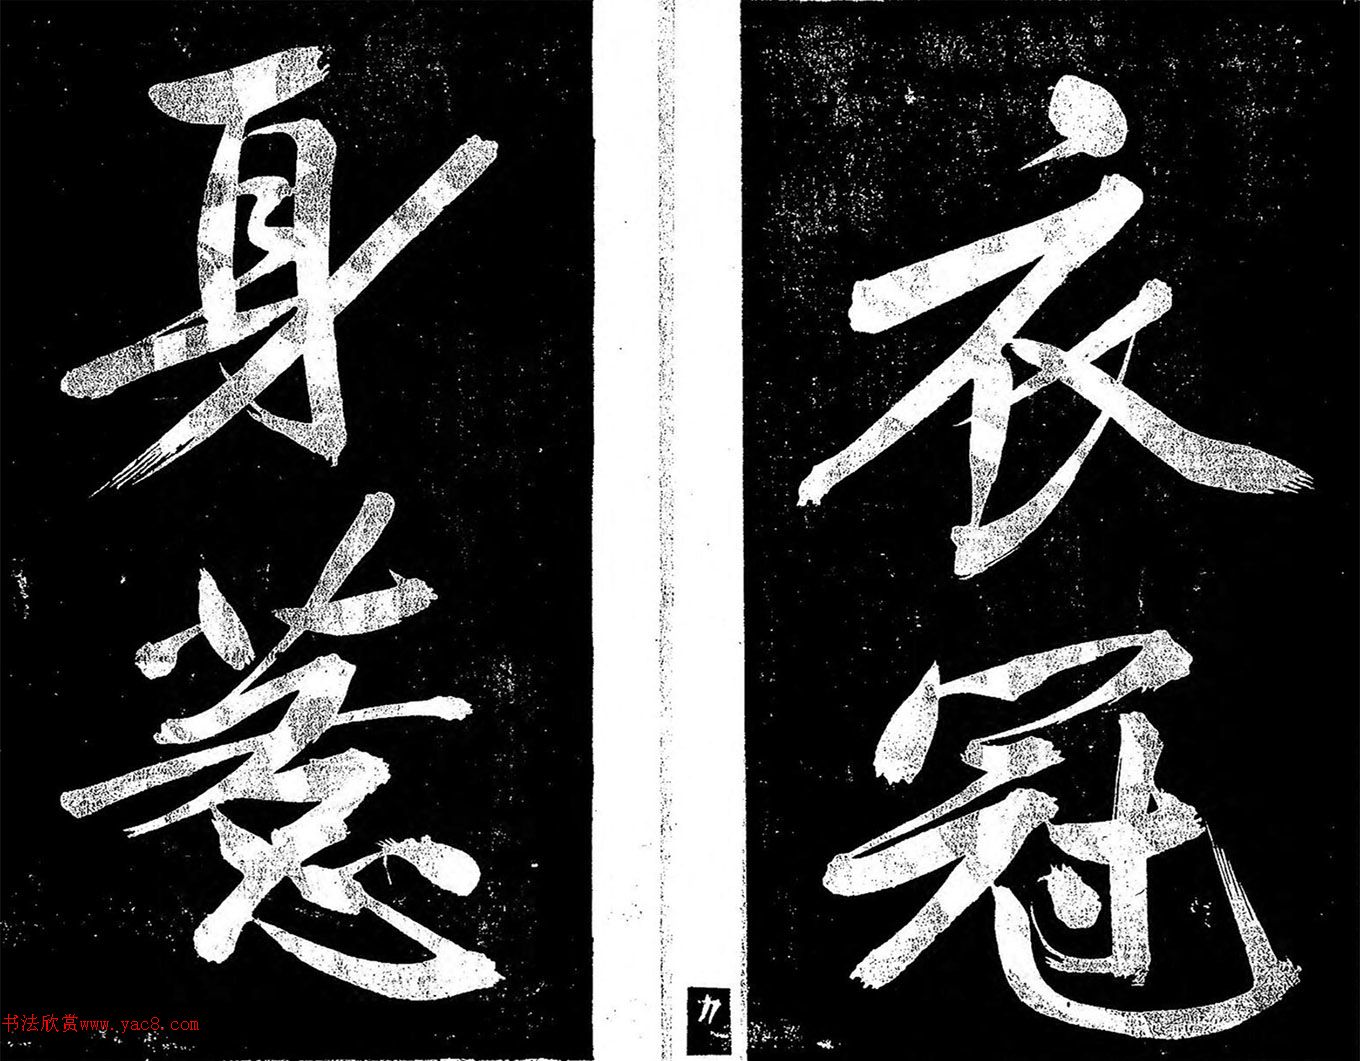 衣冠
身惹
书法欣赏www.yac8.com